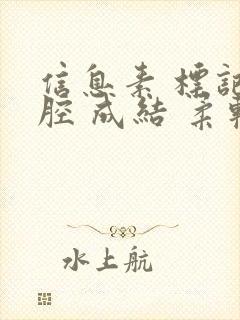 信息素 標記
腔 成結 柔軟
水上航